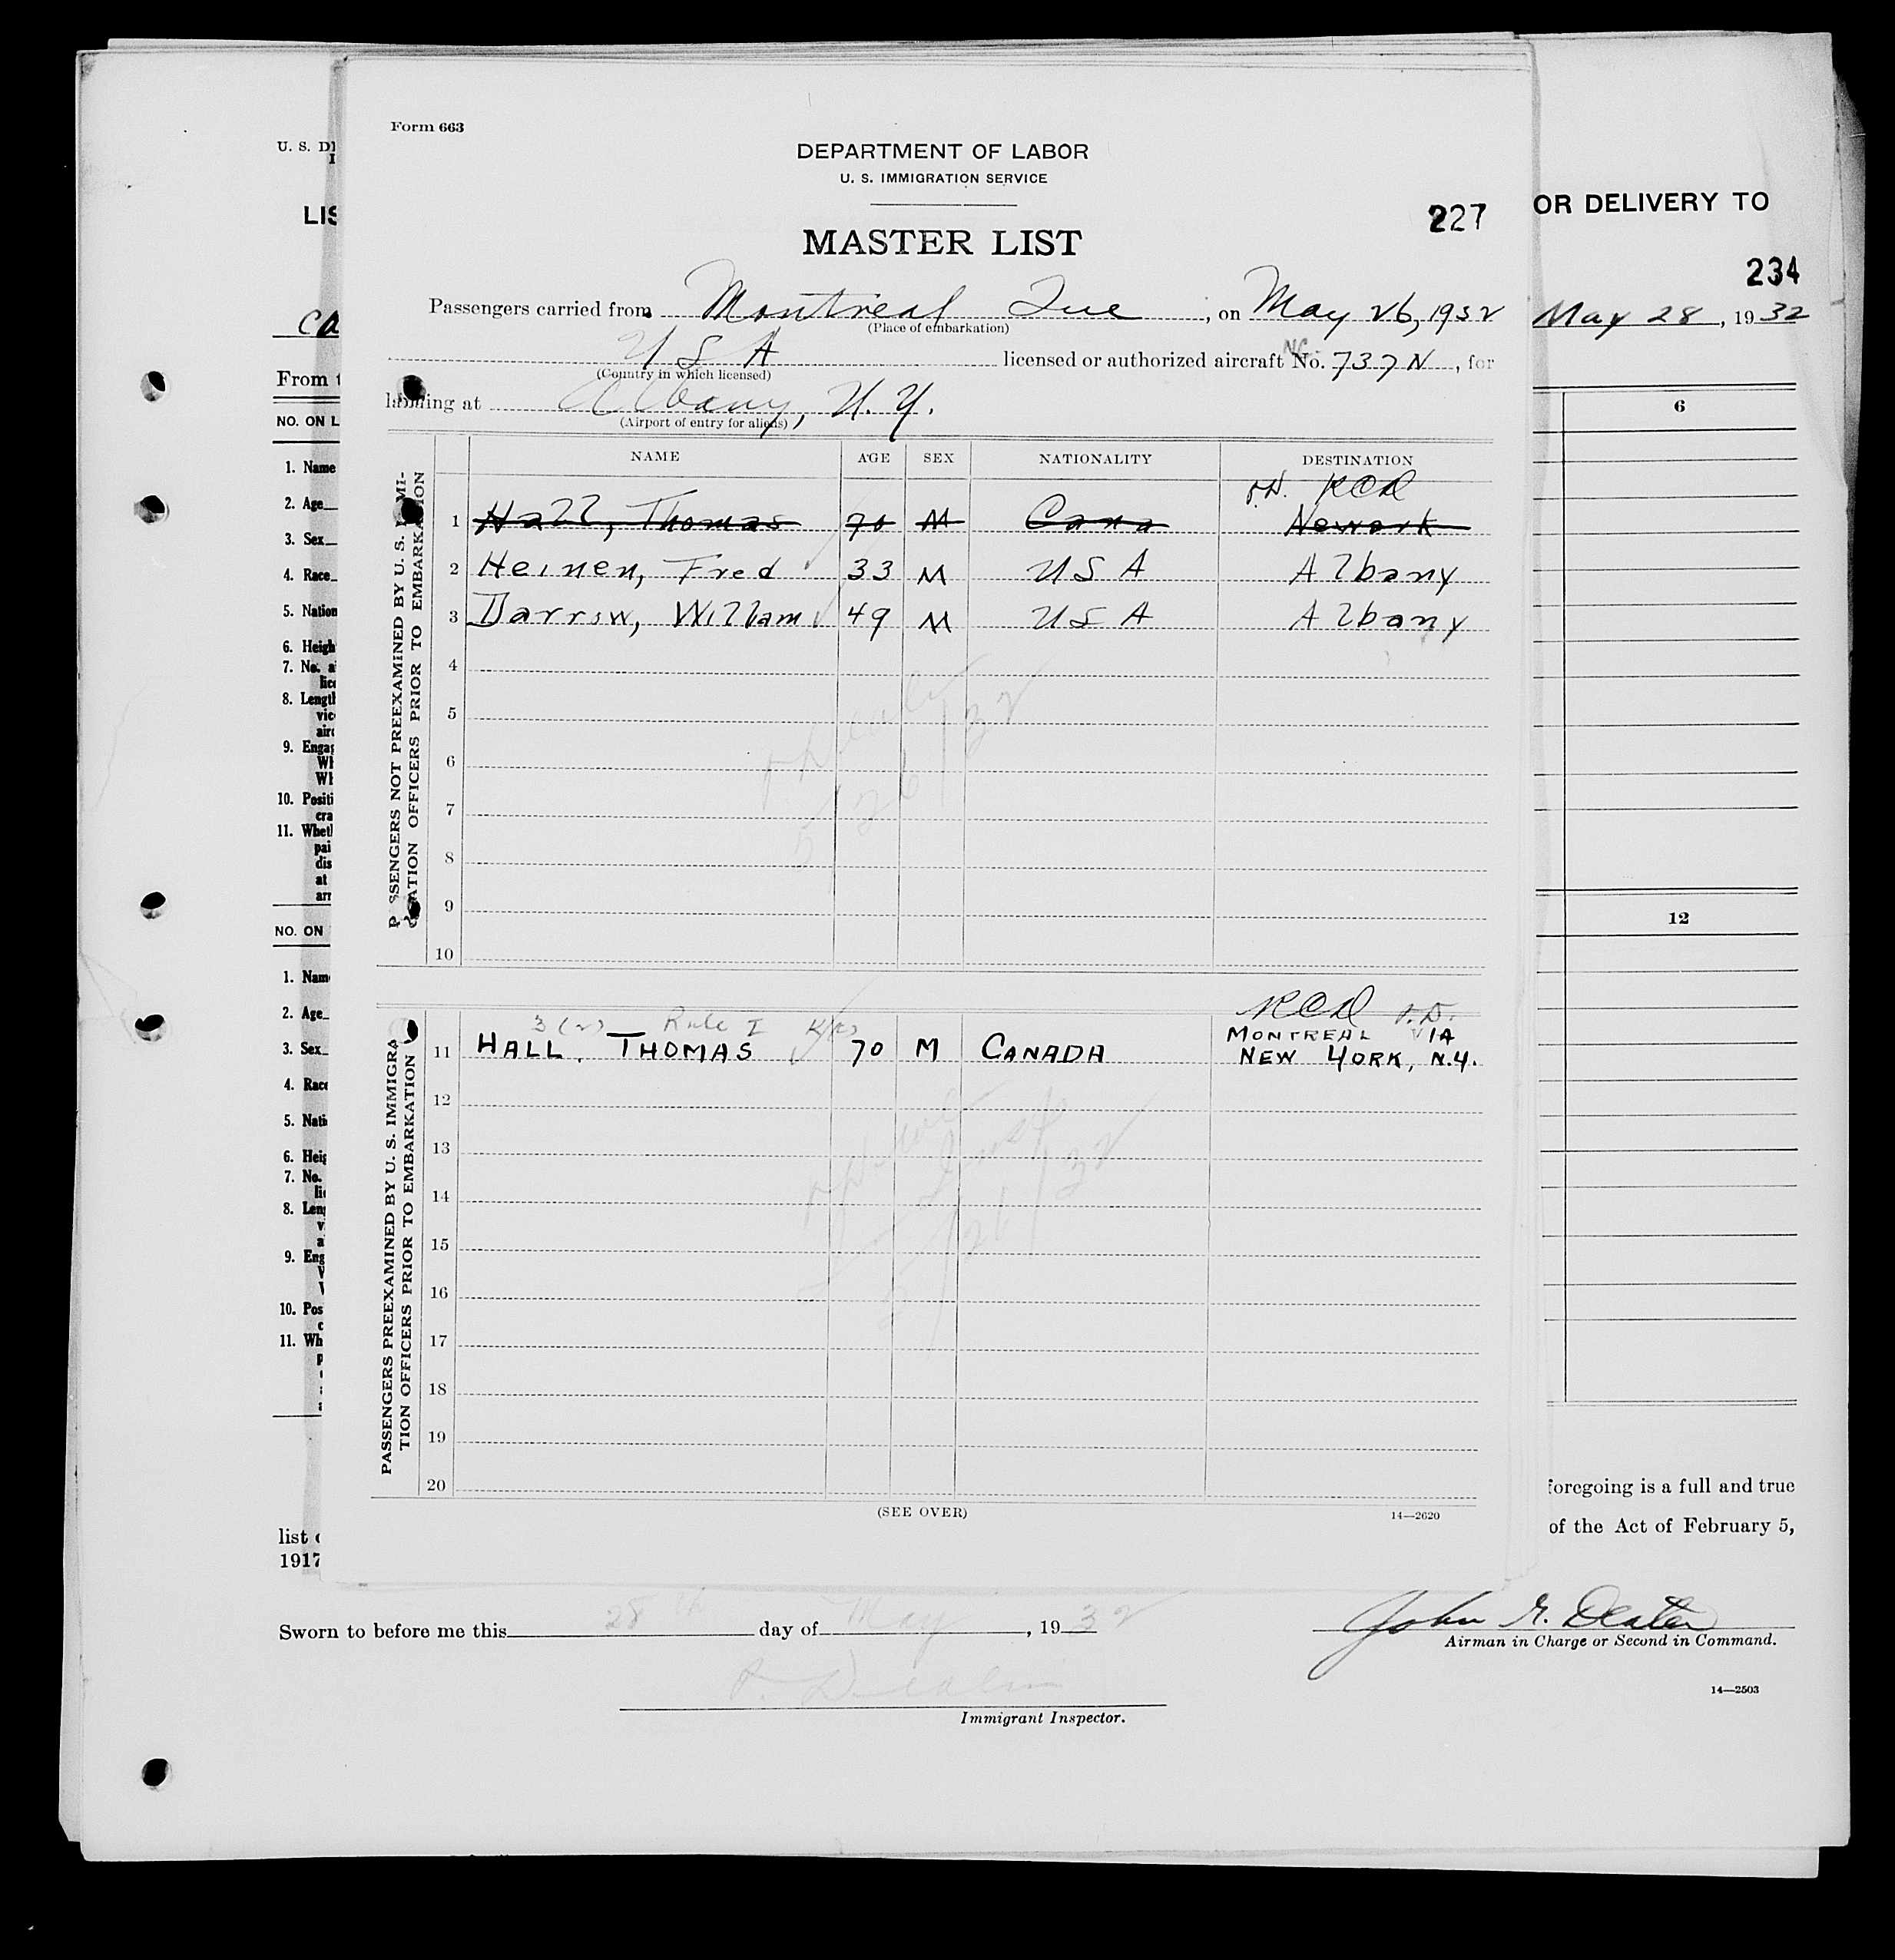 Form 663
DEPARTMENT OF LABOR
U. S. IMMIGRATION SERVICE
MASTER LIST
227
Passengers carried from Montreal Que, on May 26, 1932
(Place of embarkation)
U S A licensed or authorized aircraft No. NC. 737 N, for
(Country in which licensed)
landing at Albany, N. Y.
(Airport of entry for aliens)
PASSENGERS NOT PREEXAMINED BY U. S. IMMI-
GRATION OFFICERS PRIOR TO EMBARKATION
NAME AGE SEX NATIONALITY DESTINATION
RCD
1 Hall, Thomas 70 M Cana Newark
2 Heinen, Fred 33 M USA Albany
3 Darrow, William 49 M USA Albany
4
5
6
7
8
9
10
5/26/32
PASSENGERS PREEXAMINED BY U. S. IMMIGRA
TION OFFICERS PRIOR TO EMBARKATION
RCD
3(2) Rule I
MONTREAL VIA
11 HALL, THOMAS 70 M CANADA NEW YORK, N.Y.
12
13
14
15
16
17
18
19
20
5/26/32
(SEE OVER)
14—2620
U. S. DE
LIS
OR DELIVERY TO
234
Ca
May 28, 1932
From t
NO. ON L
6
1. Name
2. Age
3. Sex
4. Race
5. Nation
6. Heigh
7. No. a
lice
8. Lengt
vic
airc
9. Engag
Wh
Wh
10. Positi
cra
11. Whet
pai
dis
at
arr
NO. ON
12
1. Nam
2. Age
3. Sex
4. Race
5. Nati
6. Heig
7. No.
lic
8. Len
v
a
9. Eng
10. Pos
c
11. Wh
p
foregoing is a full and true
list o
of the Act of February 5,
1917
Sworn to before me this 28th day of May, 1932
John G. Deater
Airman in Charge or Second in Command.
14—2503
Immigrant Inspector.